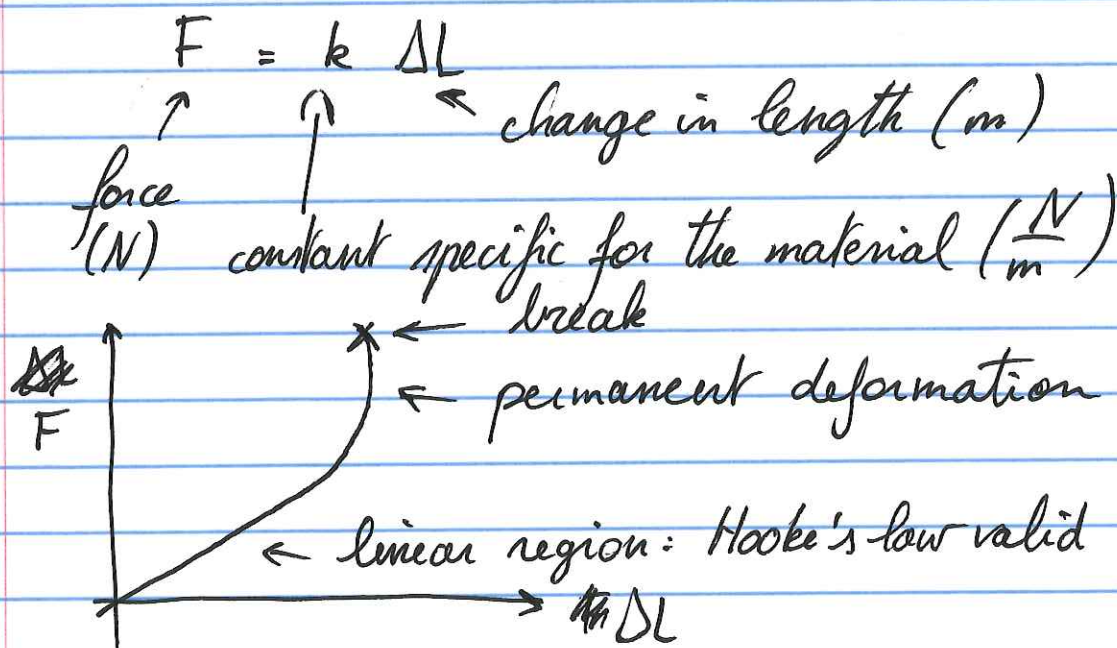 F = k ΔL
change in length (m)
force
(N) constant specific for the material (N/m)
break
permanent deformation
F
linear region: Hooke's law valid
ΔL